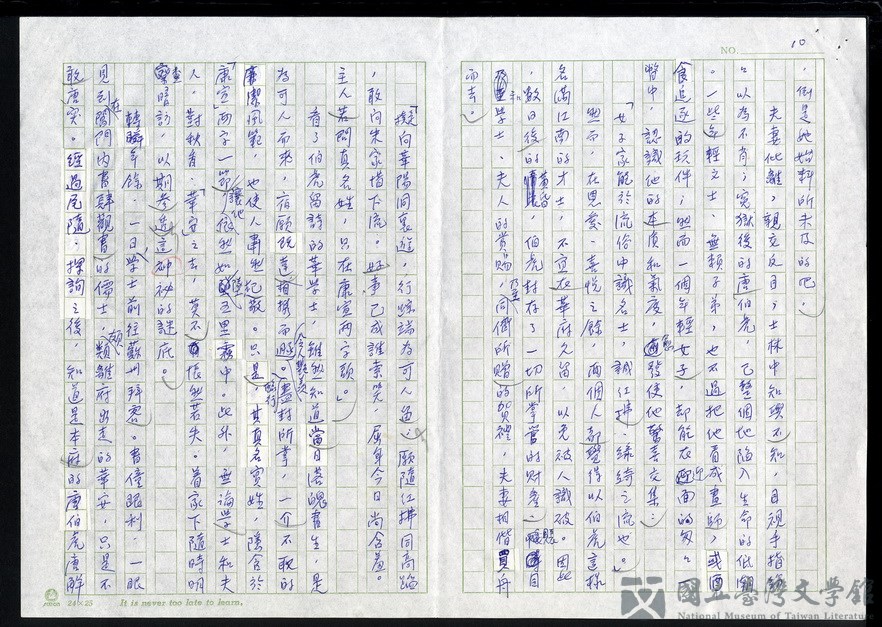 10
NO.
，倒是她始料所未及的吧。
夫妻仳離，親交反目，士林中知與不知，目視手指
，以為不肖；冤獄後的唐伯虎，已整個地陷入生命的低潮
。一些年輕文士、無賴子弟，也不過把他看成畫師，或酒
食追逐的玩伴；然而一個年輕女子，却能在迎面的匆匆一
瞥中，認識他的本質和氣度，愈發使他驚喜交集：
「女子家能於流俗中識名士，誠紅拂、綠綺之流也。」
然而，在恩愛、喜悅之餘，兩個人都覺得以伯虎這樣
名滿江南的才士，不宜在華府久留，以免被人識破。因此
，數日後的黃昏，伯虎封存了一切所掌管的財產、賬目
和學士、夫人的賞賜，乃至同儕所贈的賀禮，夫妻相偕買舟
而去。
「擬向華陽洞裏遊，行蹤端為可人留；願隨紅拂同高蹈
，敢向朱家惜下流。好事已成誰索笑，屈身今日尚含羞。
主人若問真名姓，只在康宣兩字頭。」
看了伯虎留詩的華學士，雖然知道當日落魄書生，是
為可人而來，宿願既達相攜而遯。盡封所掌，一介不取的
廉潔風範，也使人肅然起敬。只是，其真名實姓，隱含於
「康宣」兩字一節，讓他徹然如墮五里霧中。此外，無論學士和夫
人，對秋香、「華安」之去，莫不悵然若失。着家下隨時明
查暗訪，以期參透這神祕的謎底。
轉瞬年餘，一日學士前往蘇州拜客。書僮眼利，一眼
見到在閶門內書肆觀書的儒士，頗類離府出走的華安，只是不
敢唐突。經過尾隨、探詢之後，知道是本府的唐伯虎唐解
24×25 It is never too late to learn.
國立臺灣文學館
National Museum of Taiwan Literature